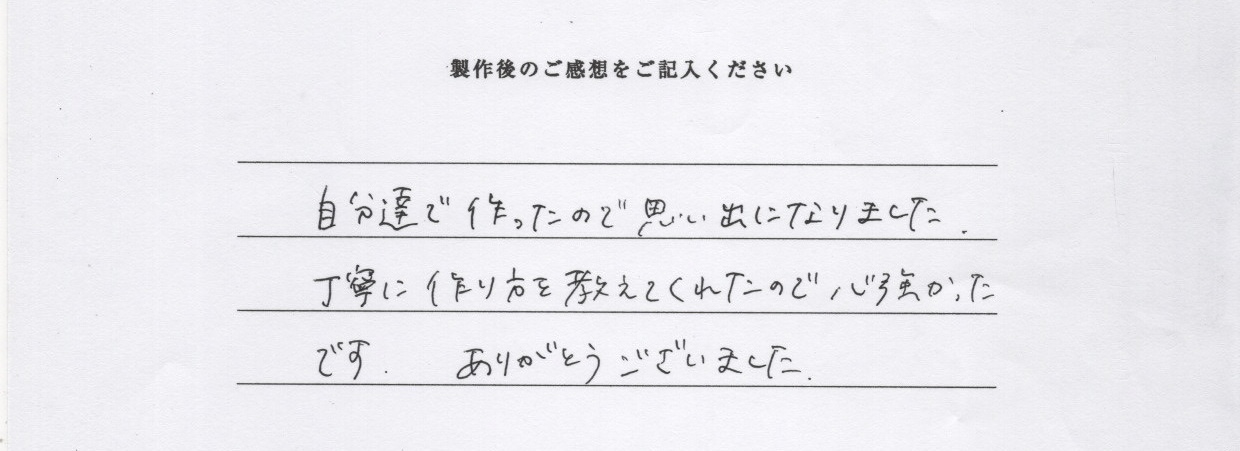 製作後のご感想をご記入ください
自分達で作ったので思い出になりました.
丁寧に作り方を教えてくれたので心強かった
です. ありがとうございました.